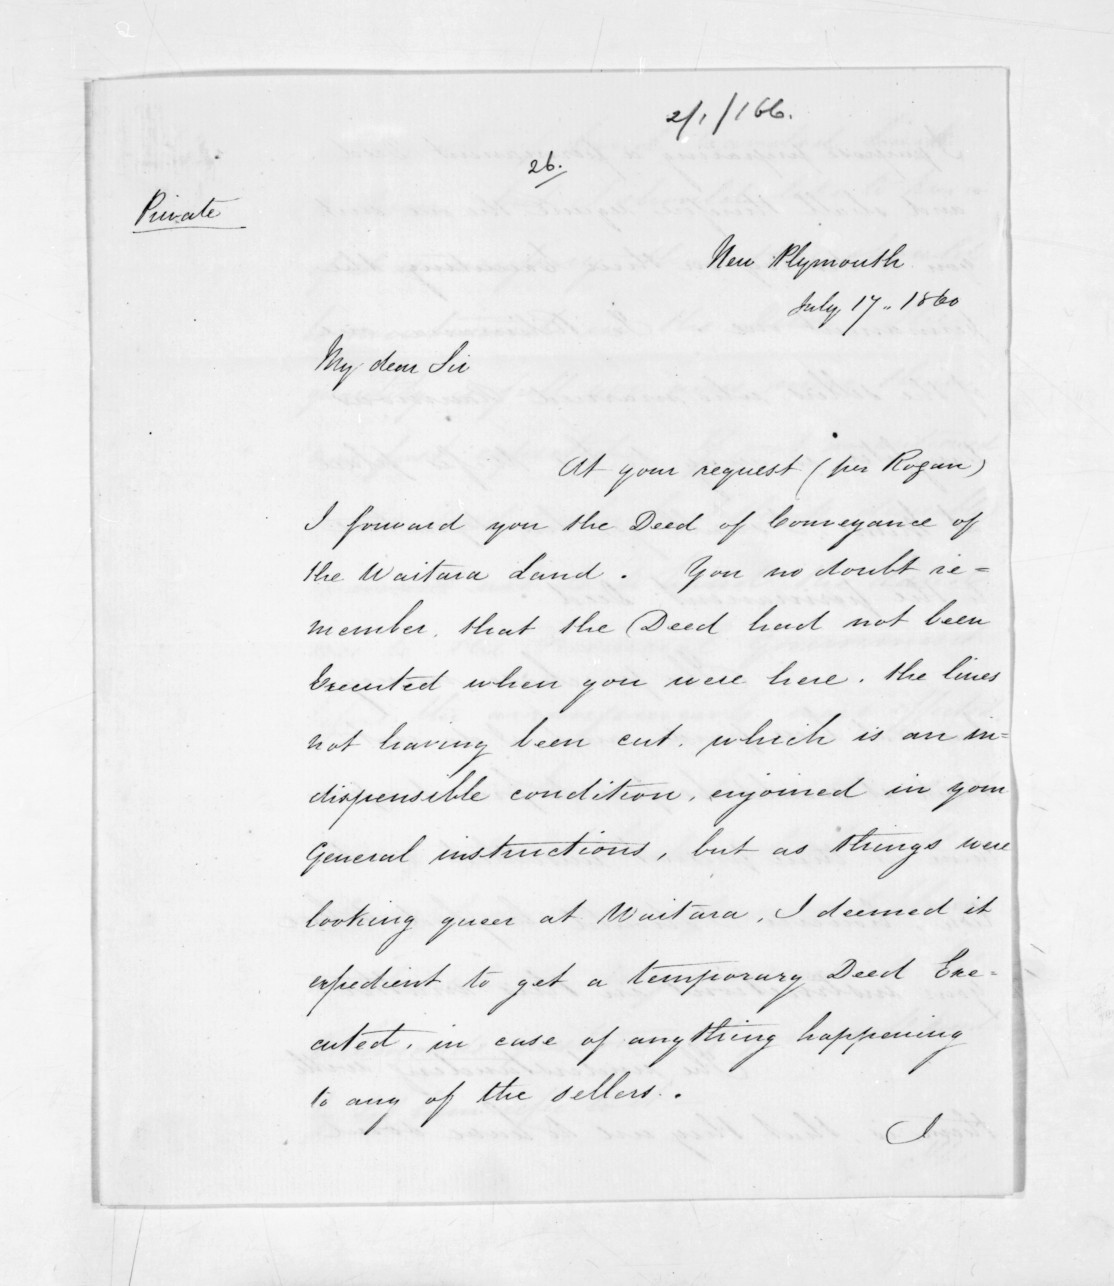 2/1/166.
26.
Private
New Plymouth
July 17.. 1860
My dear Sir
At your request (per Rogan)
I forward you the Deed of Conveyance of
the Waitara Land. You no doubt re=
member, that the Deed had not been
Executed when you were here, the lines
not having been cut, which is an in=
dispensible condition, enjoined in your
General instructions, but as things were
looking queer at Waitara, I deemed it
expedient to get a temporary Deed Exe=
cuted, in case of anything happening
to any of the sellers.
I